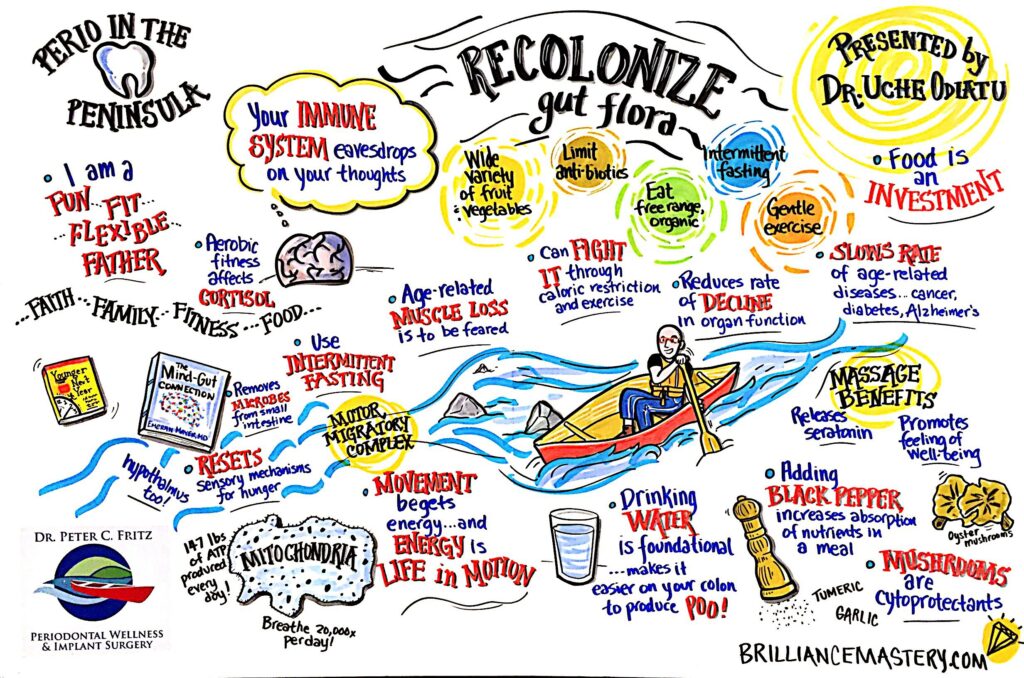 PERIO IN THE
PENINSULA
RECOLONIZE
gut flora
PRESENTED by
DR. UCHE ODIATU
Your IMMUNE
SYSTEM eavesdrops
on your thoughts
Wide
variety
of fruit
& vegetables
Limit
anti-biotics
Eat
free range,
organic
Intermittent
fasting
Gentle
exercise
• Food is
an
INVESTMENT
• I am a
FUN... FIT...
FLEXIBLE...
FATHER
• Aerobic
fitness
affects
CORTISOL
...FAITH...FAMILY...FITNESS...FOOD...
• Age-related
MUSCLE LOSS
is to be feared
• Can FIGHT
IT through
caloric restriction
and exercise
• Reduces rate
of DECLINE
in organ function
• SLOWS RATE
of age-related
diseases... cancer,
diabetes, Alzheimer's
Younger
Next
Year
The
Mind-Gut
CONNECTION
EMERAN MAYER, MD
• Use
INTERMITTENT
FASTING
• Removes
MICROBES
from small
intestine
MOTOR
MIGRATORY
COMPLEX
hypothalmus
too!
• RESETS
sensory mechanisms
for hunger
MASSAGE
BENEFITS
Releases
seratonin
Promotes
feeling of
well-being
147 lbs
of ATP
produced
every
day!
MITOCHONDRIA
Breathe 20,000x
per day!
• MOVEMENT
begets
energy...and
ENERGY is
LIFE in MOTION
• Drinking
WATER
is foundational
...makes it
easier on your colon
to produce POO!
• Adding
BLACK PEPPER
increases absorption
of nutrients in
a meal
TUMERIC
GARLIC
Oyster
mushrooms
• MUSHROOMS
are
cytoprotectants
DR. PETER C. FRITZ
PERIODONTAL WELLNESS
& IMPLANT SURGERY
BRILLIANCEMASTERY.COM